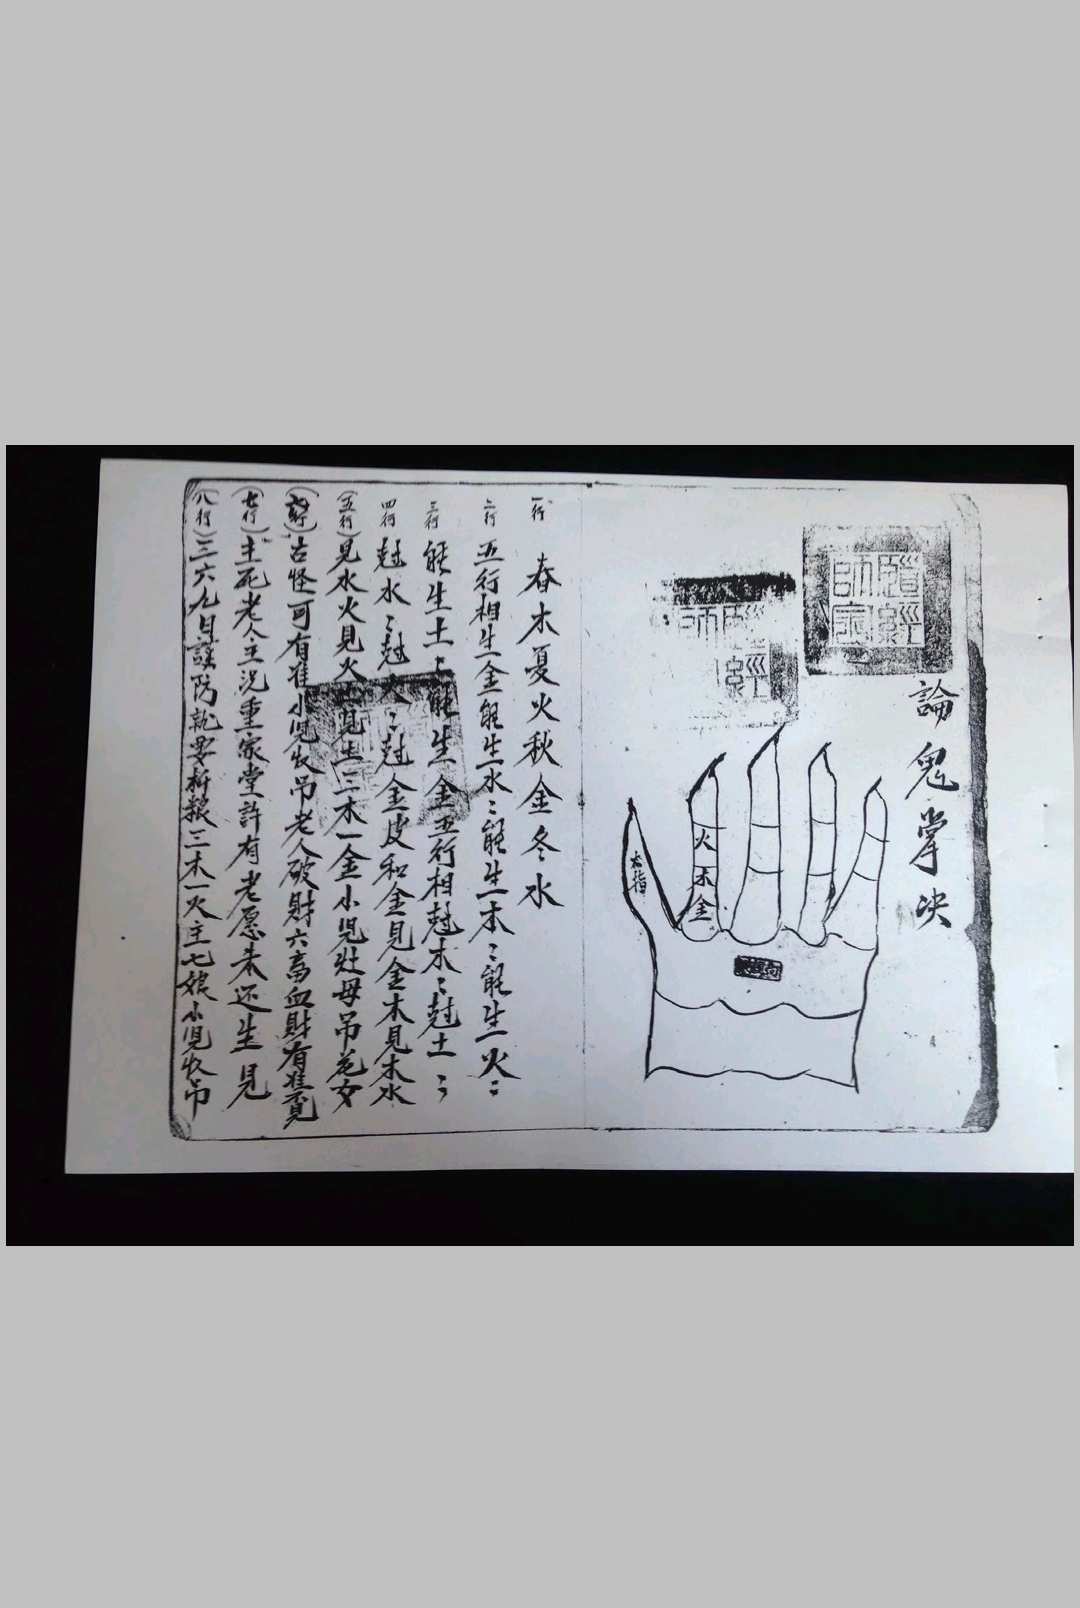 論鬼掌决
大指
火
木
金
一行 春木夏火秋金冬水
二行 五行相生金能生水〻能生木〻能生火〻
三行 能生土〻能生金五行相尅木〻尅土〻
四行 尅水〻尅火〻尅金皮和金見金木見木水
(五行) 見水火見火土見土三木一金小児灶母吊花女
古怪可有准小児收吊老人破財六畜血財有準見
(七行) 主死老人主況重家堂許有老愿未还生見
(八行) 三六九日謹防就要祈禳三木一火主七娘小児收吊